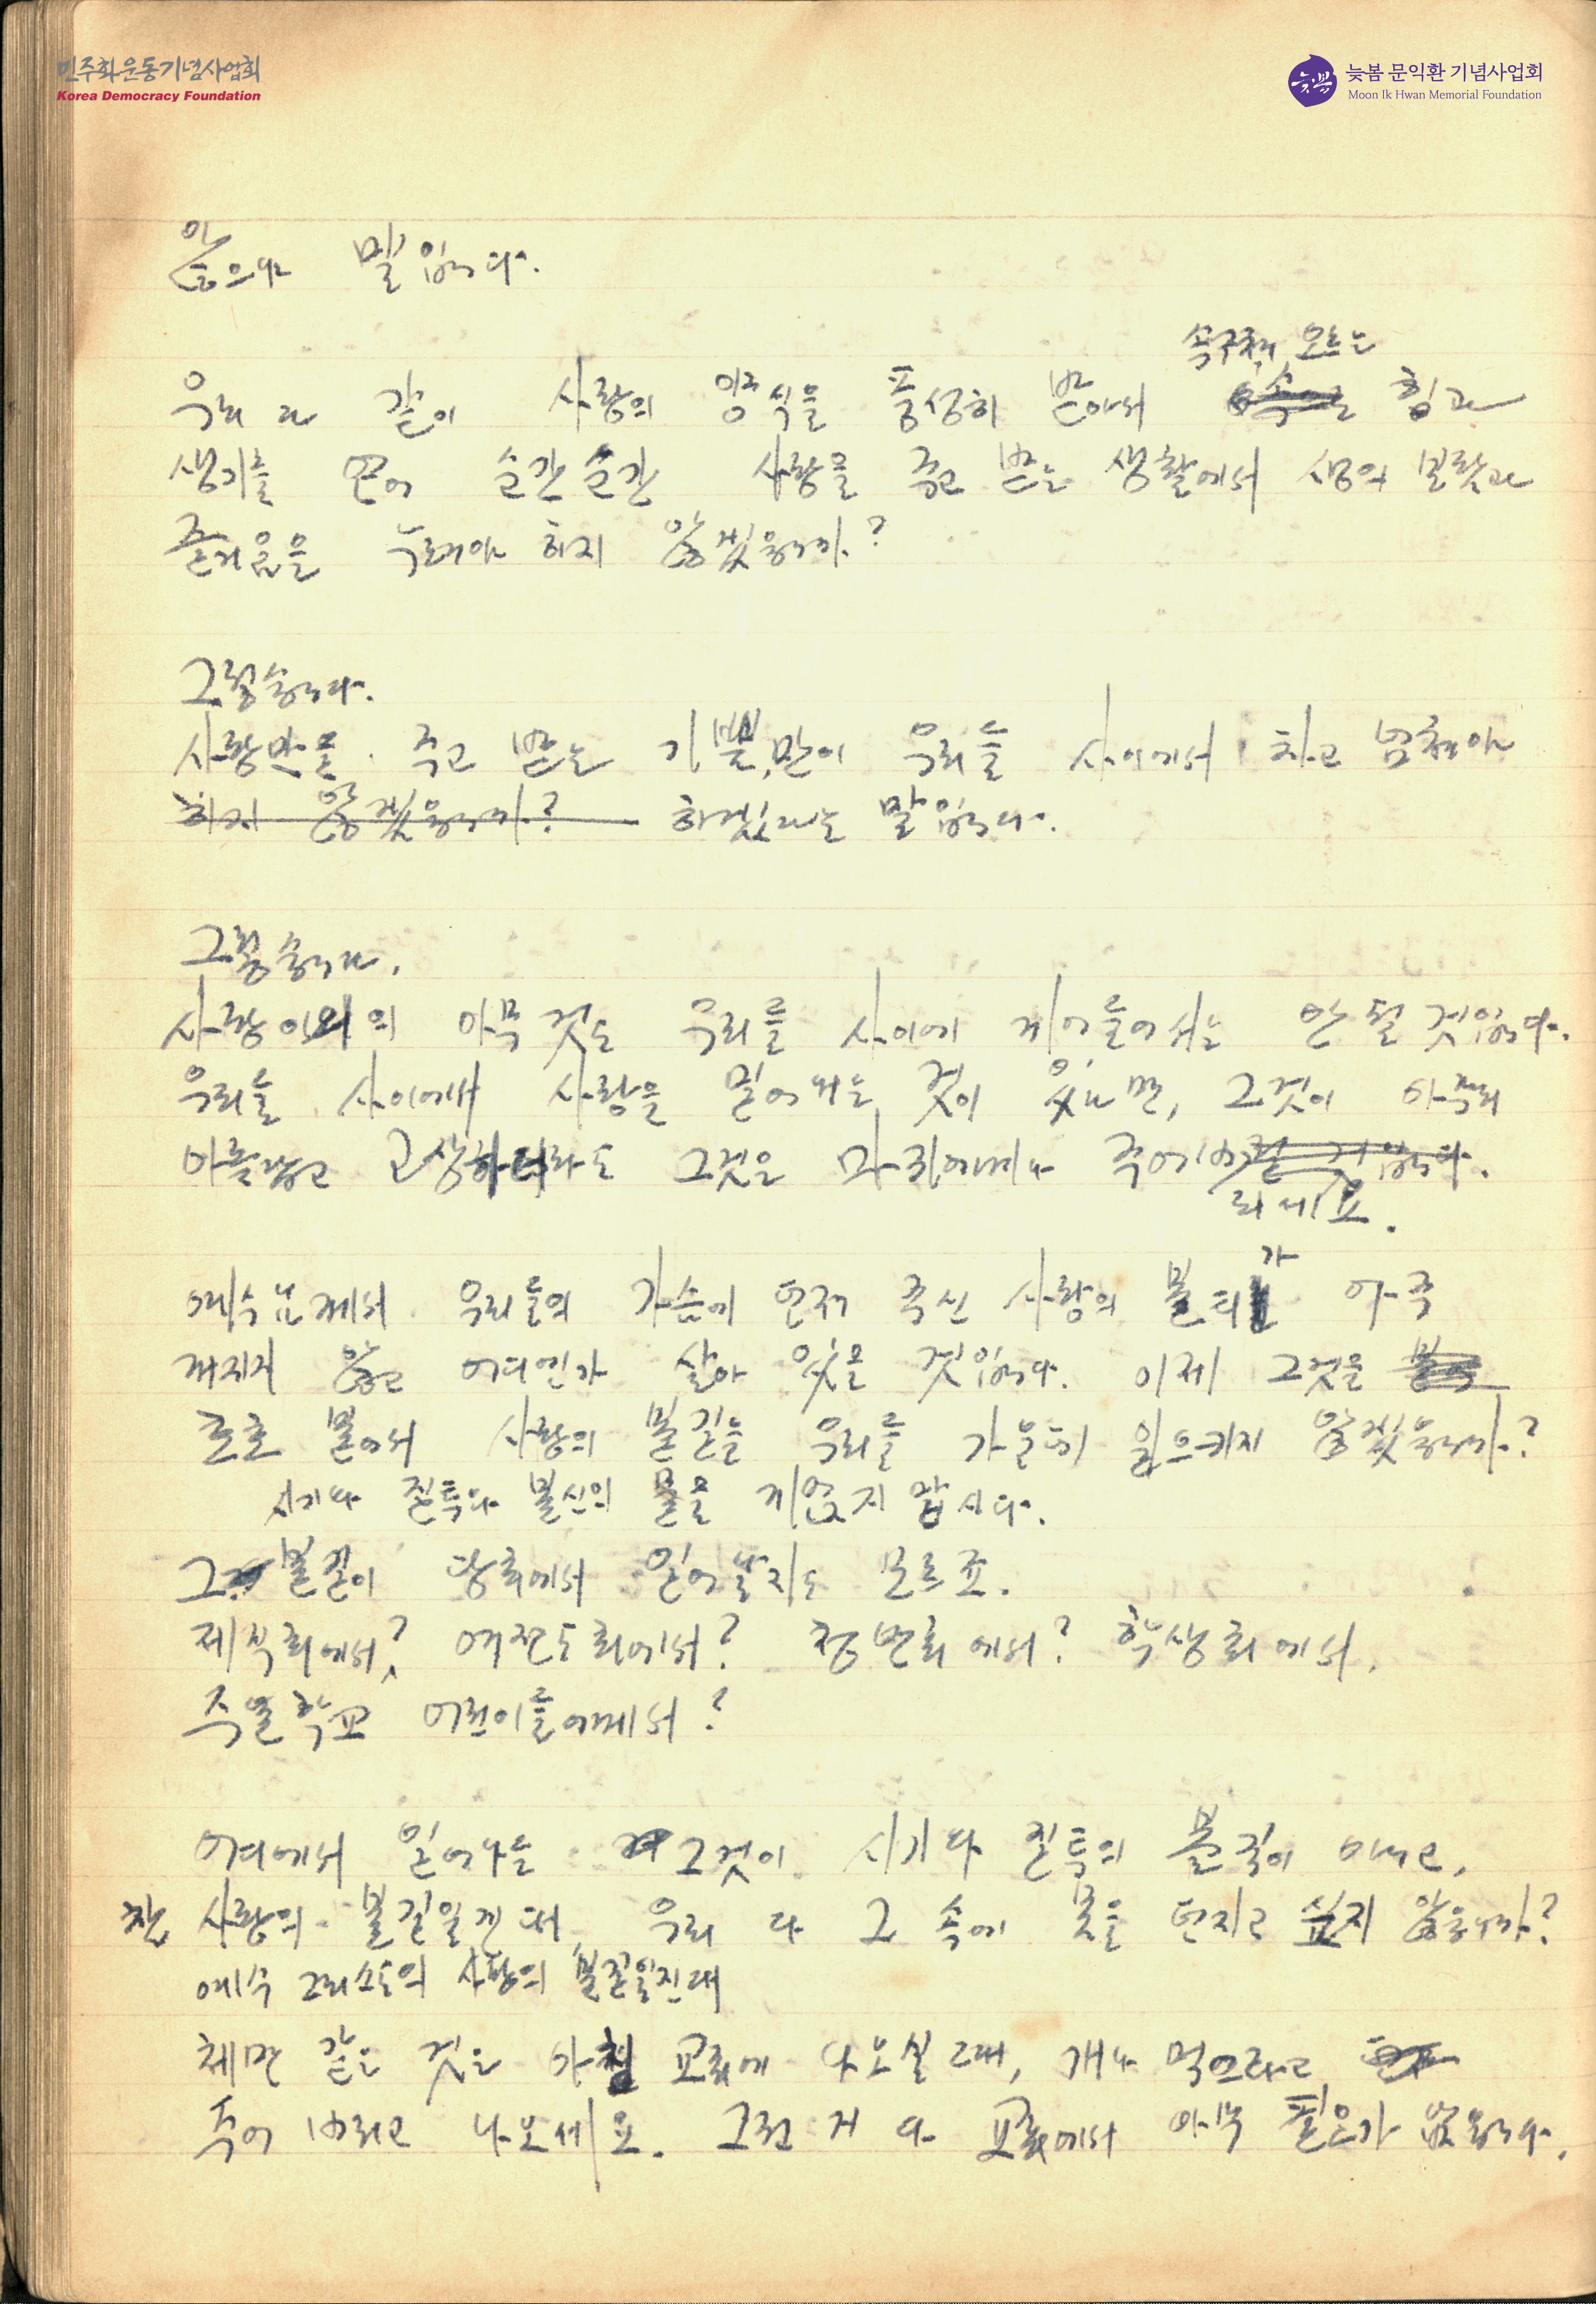 민주화운동기념사업회
Korea Democracy Foundation
늦봄 문익환 기념사업회
Moon Ik Hwan Memorial Foundation
말입니다.
솟구쳐 오르는
우리 다 같이 사랑의 양식을 풍성히 받아서 힘과
생기를 얻어 순간순간 사랑을 주고 받는 생활에서 생의 보람과
즐거움을 누려야 하지 않겠읍니까?
그렇습니다.
사랑만을 주고 받는 기쁨만이 우리들 사이에서 차고 넘쳐야
하지 않겠읍니까? 하겠다는 말입니다.
그렇습니다.
사랑 이외의 아무 것도 우리들 사이에 끼어들어서는 안 될 것입니다.
우리들 사이에서 사랑을 밀어내는 것이 있다면, 그것이 아무리
아름답고 고상하더라도 그것은 마귀에게나 주어버릴 것입니다.
리세요.
예수님께서 우리들의 가슴에 던져 주신 사랑의 불티가 아주
꺼지지 않고 어디엔가 살아 있을 것입니다. 이제 그것을
호호 불어서 사랑의 불길을 우리들 가운데 일으키지 않겠읍니까?
시기나 질투나 불신의 물을 끼얹지 맙시다.
그 불길이 당회에서 일어날지도 모르죠.
제직회에서? 여전도회에서? 청년회에서? 학생회에서,
주일학교 어린이들에게서?
어디에서 일어나든 그것이 시기나 질투의 불길이 아니고,
참 사랑의 불길일진대 우리 다 그 속에 몸을 던지고 싶지 않습니까?
예수 그리스도의 사랑의 불길일진대
체면 같은 것은 아침 교회에 나오실 때, 개나 먹으라고
주어 버리고 나오세요. 그런 거 다 교회에서 아무 필요가 없읍니다.